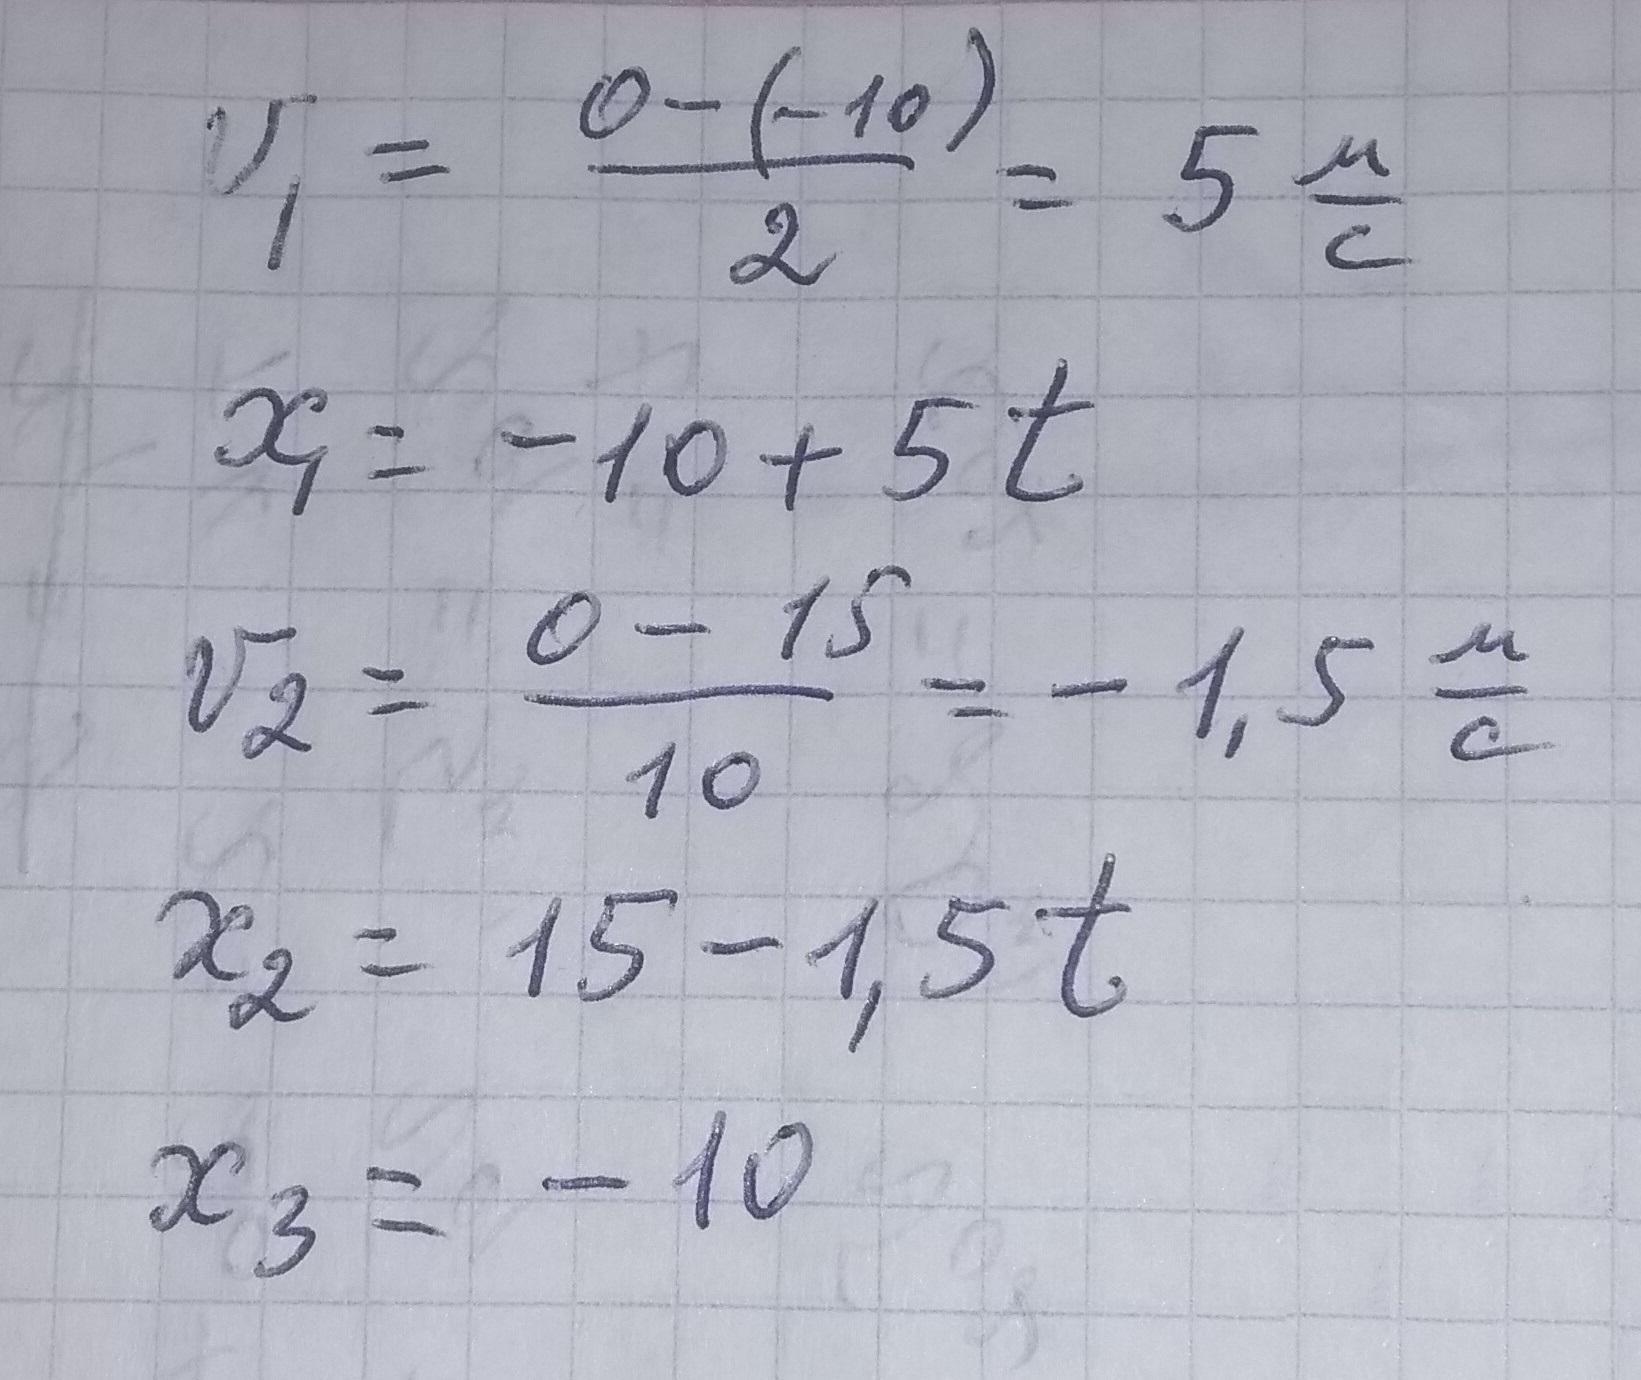 v₁ = (0-(-10))/2 = 5 м/с
x₁ = -10 + 5t
v₂ = (0 - 15)/10 = -1,5 м/с
x₂ = 15 - 1,5t
x₃ = -10